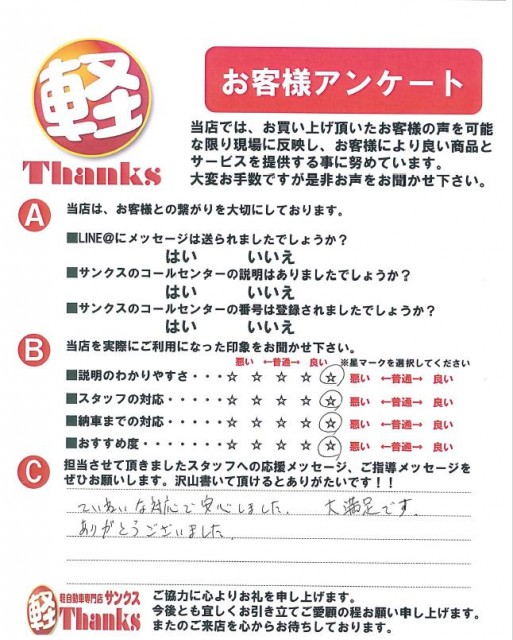 軽
Thanks
お客様アンケート
当店では、お買い上げ頂いたお客様の声を可能
な限り現場に反映し、お客様により良い商品と
サービスを提供する事に努めています。
大変お手数ですが是非お声をお聞かせ下さい。
A 当店は、お客様との繋がりを大切にしております。
■LINE@にメッセージは送られましたでしょうか？
はい いいえ
■サンクスのコールセンターの説明はありましたでしょうか？
はい いいえ
■サンクスのコールセンターの番号は登録されましたでしょうか？
はい いいえ
B 当店を実際にご利用になった印象をお聞かせ下さい。
悪い ←普通→ 良い ※星マークを選択してください
■説明のわかりやすさ・・・・☆ ☆ ☆ ☆ ☆ 悪い ←普通→ 良い
■スタッフの対応・・・・・☆ ☆ ☆ ☆ ☆ 悪い ←普通→ 良い
■納車までの対応・・・・・☆ ☆ ☆ ☆ ☆ 悪い ←普通→ 良い
■おすすめ度・・・・・・・☆ ☆ ☆ ☆ ☆ 悪い ←普通→ 良い
C 担当させて頂きましたスタッフへの応援メッセージ、ご指導メッセージを
ぜひお願いします。沢山書いて頂けるとありがたいです！！
ていねいな対応で安心しました。 大満足です。
ありがとうございました。
軽 軽自動車専門店 サンクス
Thanks
ご協力に心よりお礼を申し上げます。
今後とも宜しくお引き立てご愛顧の程お願い申し上げます。
またのご来店を心からお待ちしております。